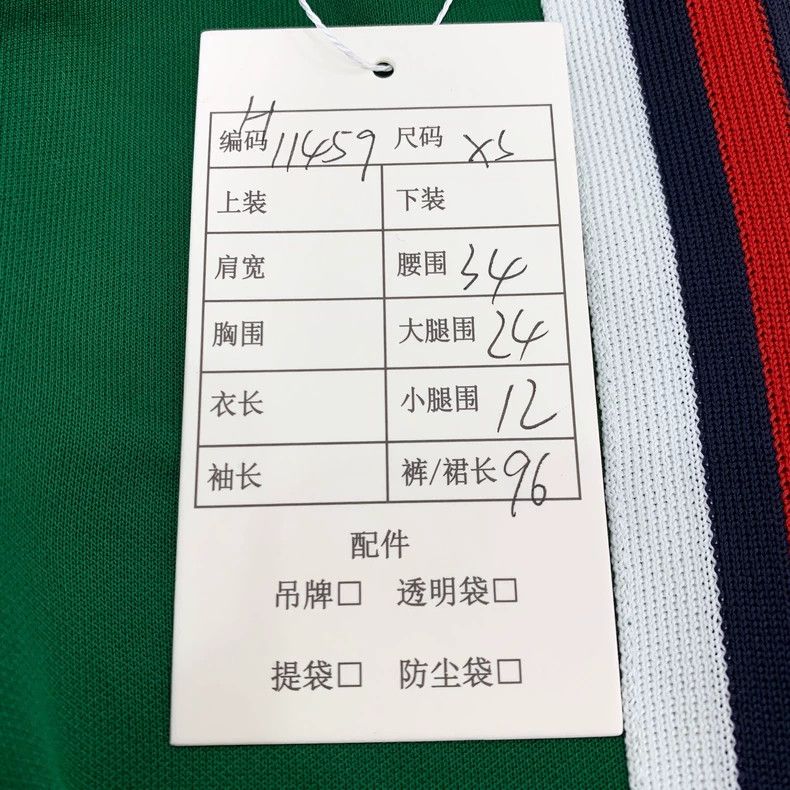 编码 H11459 尺码 XS
上装 下装
肩宽 腰围 34
胸围 大腿围 24
衣长 小腿围 12
袖长 裤/裙长 96
配件
吊牌□ 透明袋□
提袋□ 防尘袋□